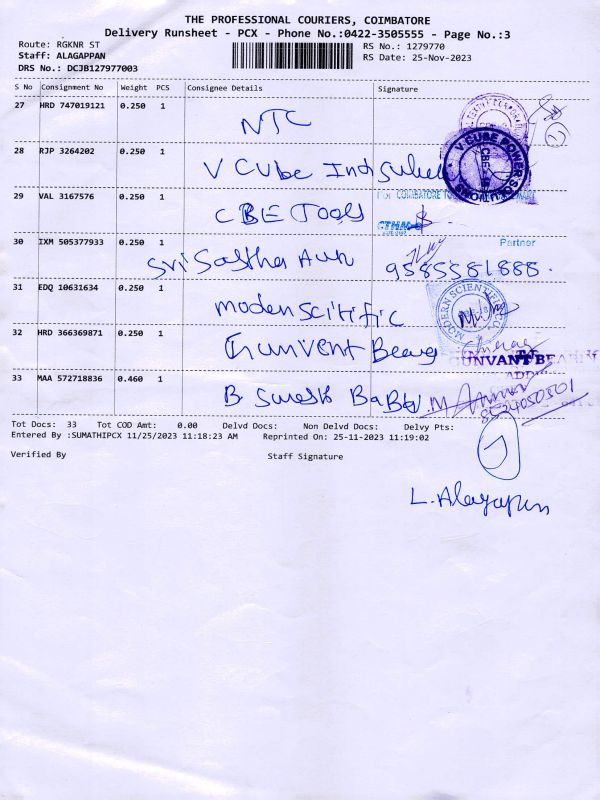 THE PROFESSIONAL COURIERS, COIMBATORE
Delivery Runsheet - PCX - Phone No.:0422-3505555 - Page No.:3
Route: RGKNR ST RS No.: 1279770
Staff: ALAGAPPAN RS Date: 25-Nov-2023
DRS No.: DCJB127977003
S No Consignment No Weight PCS Consignee Details Signature
27 HRD 747019121 0.250 1 NTC
28 RJP 3264202 0.250 1 V CUbe
V CUBE POWER
29 VAL 3167576 0.250 1 CBE Tools
For COIMBATORE
30 IXM 505377933 0.250 1 Sri Sastha Aun 9585581888.
Partner
31 EDQ 10631634 0.250 1 moden scitific
MODERN SCIENTIFIC
32 HRD 366369871 0.250 1 Gunvent Beang
GUNVANT
33 MAA 572718836 0.460 1 B. Suresh Babu
Tot Docs: 33 Tot COD Amt: 0.00 Delvd Docs: Non Delvd Docs: Delvy Pts:
Entered By :SUMATHIPCX 11/25/2023 11:18:23 AM Reprinted On: 25-11-2023 11:19:02
Verified By Staff Signature
L. Alagappan